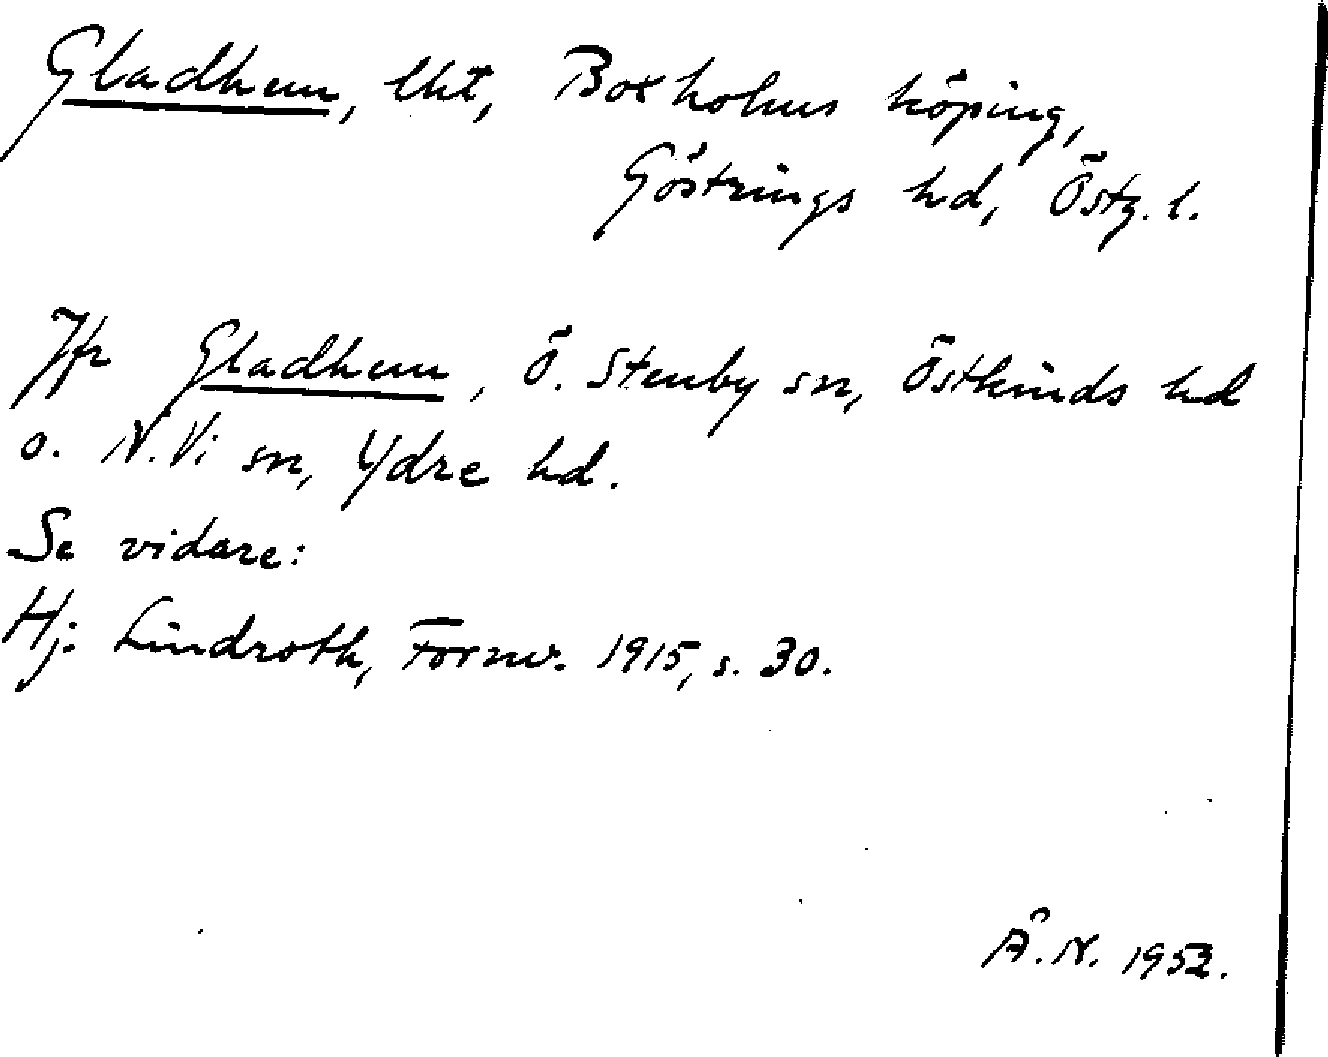 Gladhem, lht, Boxholms köping,
Göstrings hd, Östg. l.
Jfr Gladhem, Ö. Stenby sn, Östkinds hd
o. N. Vi sn, Ydre hd.
Se vidare:
Hj. Lindroth, Fornv. 1915, s. 30.
Å. N. 1952.